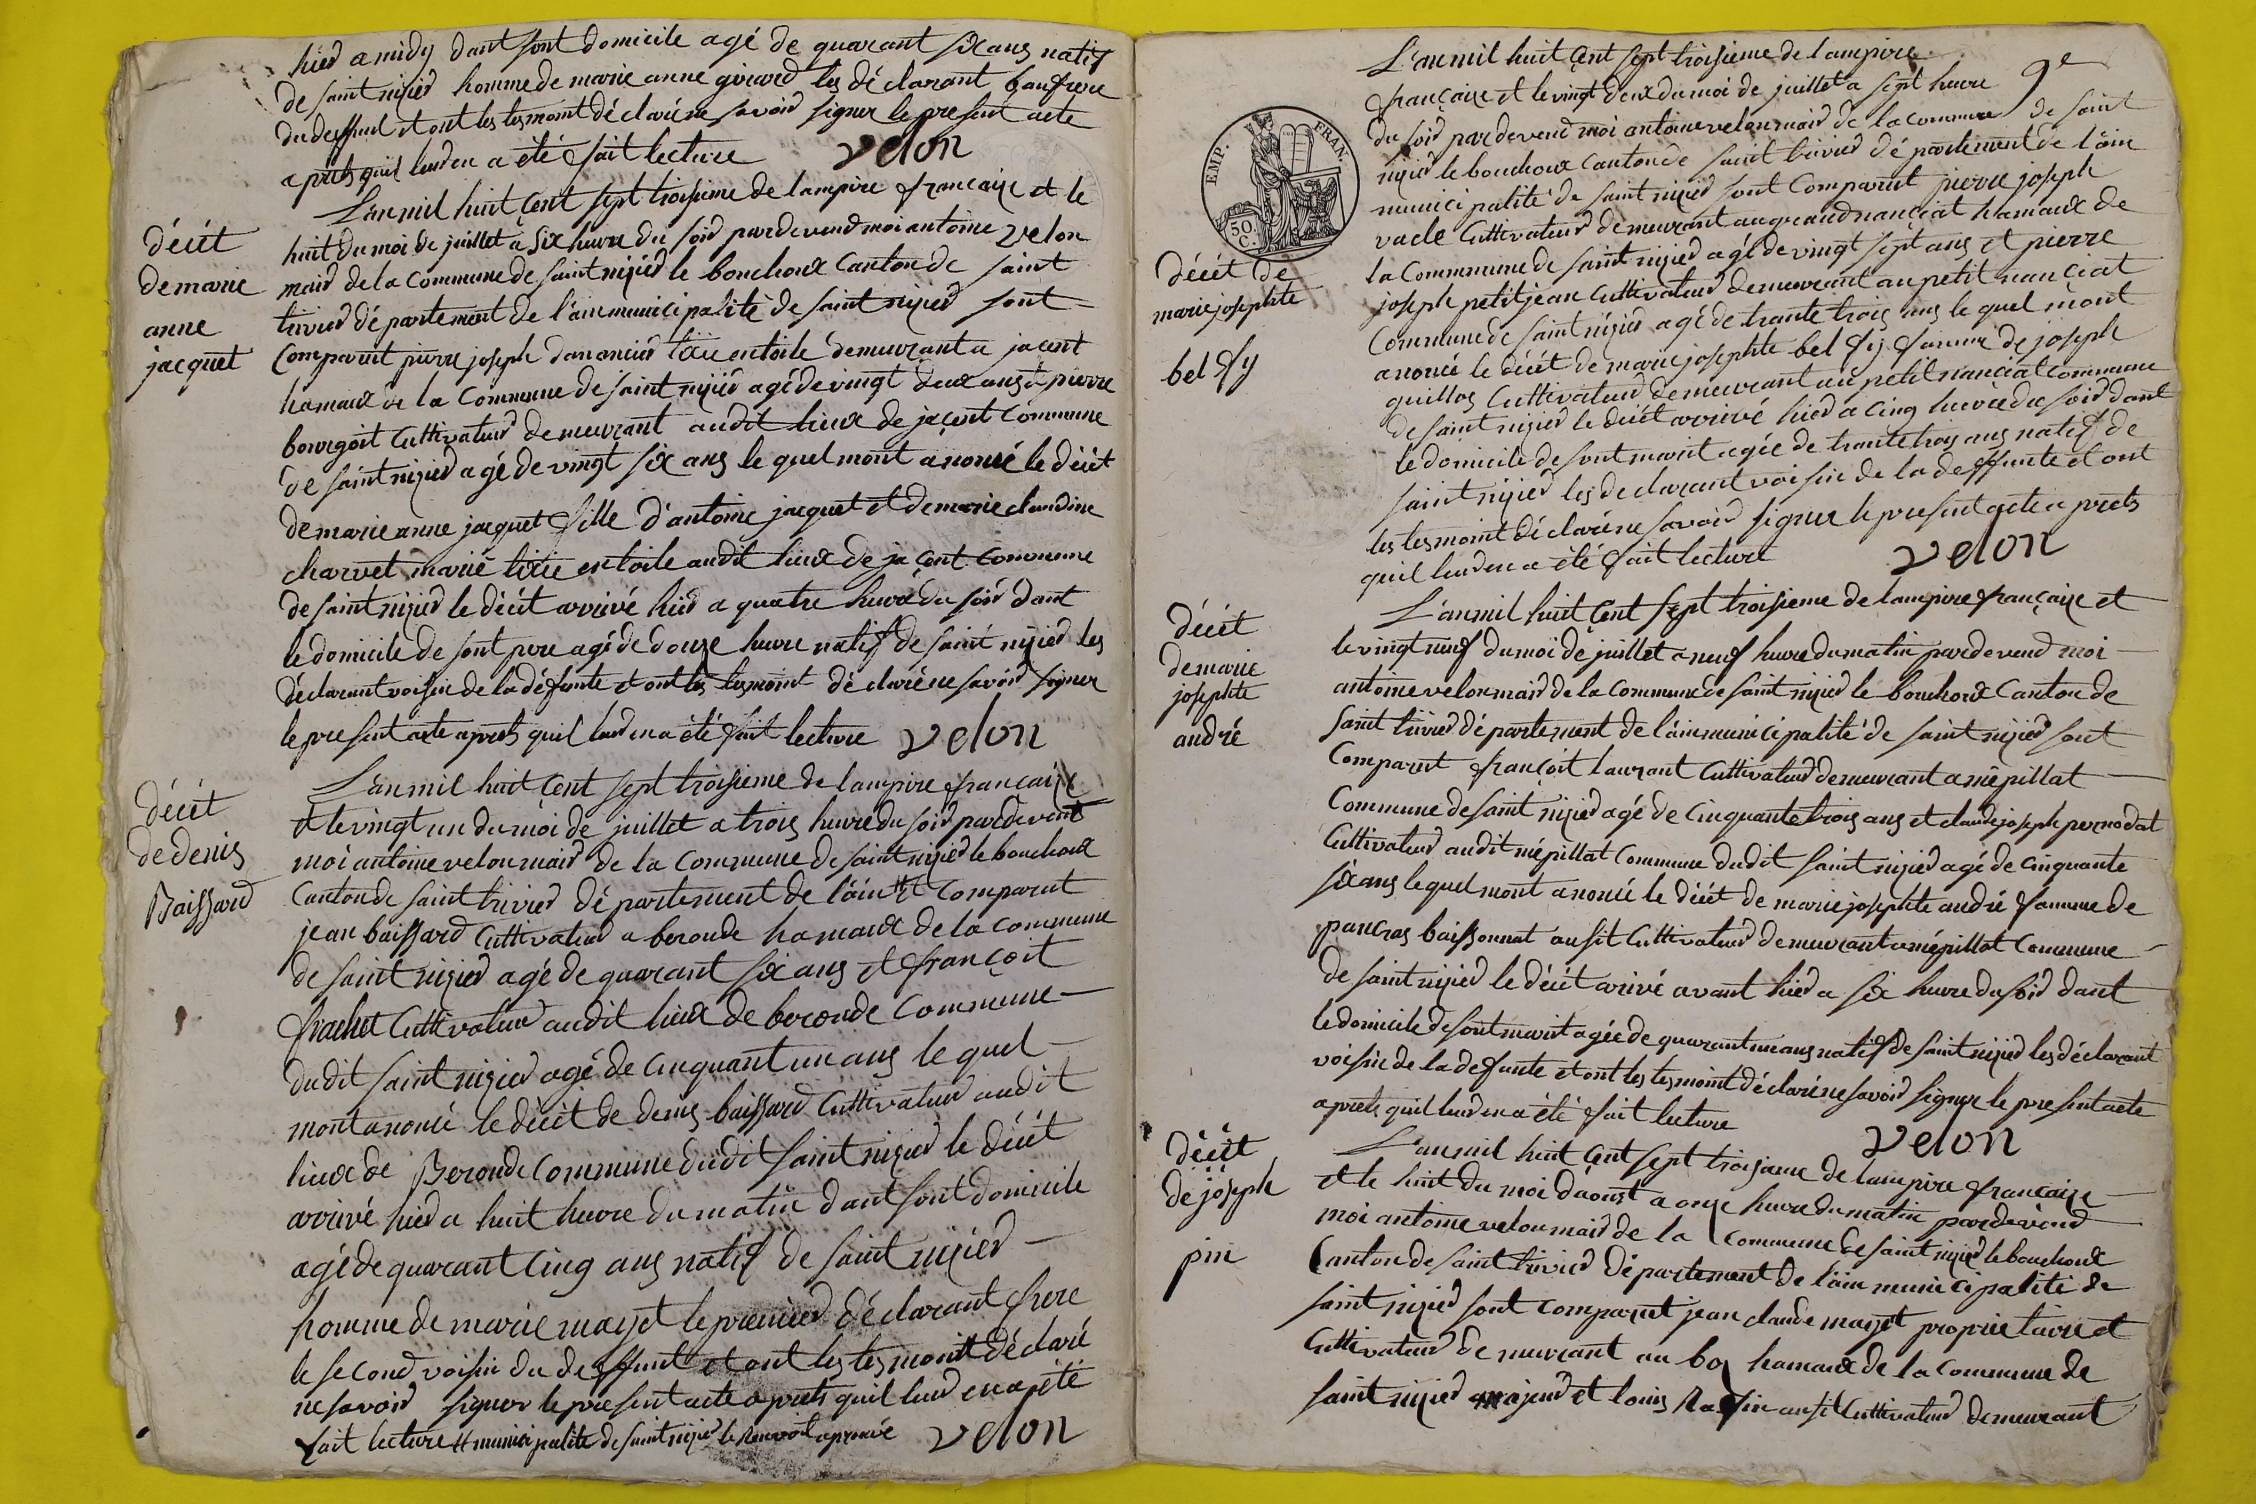 hier a midy dant sont domicile agé de quarant six ans natif
de saint nizier homme de marie anne girard les déclarant baufrere
du deffunt et ont les tesmoint déclaré ne savoir signer le present acte
aprets quil leur en a été fait lecture velon
décét
de marie
anne
jacquet
L'an mil huit cent sept troisieme de lampire francaise et le
huit du moi de juillet a six heure du soir par devend moi antoine velon
maid de la commune de saint nizier le bouchoux canton de saint
trivier département de l'ain municipalité de saint nizier sont
comparut pierre joseph danancier tixie en toile demeurant a jacent
hamaux de la commune de saint nizier agé de vingt deux ans et pierre
bourgoit cultivateur demeurant audit lieux de jacent commune
de saint nizier agé de vingt six ans le quel mont anoncé le décét
de marie anne jacquet fille d'antoine jacquet et de marie claudine
charvet marié tixie en toile audit lieux de jacent commune
de saint nizier le décét arrivé hier a quatre heure du soir dant
le domicile de sont pere agé de douze heure natif de saint nizier les
déclarant voisin de la défunte et ont les tesmoint déclaré ne savoir signer
le present acte aprets quil leur en a été fait lecture velon
décét
de denis
Baissard
L'an mil huit cent sept troisieme de lampire francaise
et le vingt un du moi de juillet a trois heure du soir par devent
moi antoine velon maid de la commune de saint nizier le bouchoux
canton de saint trivier département de l'ain # comparut
jean baissard cultivateur a beronde hamaux de la commune
de saint nizier agé de quarant six ans et françoit
frachet cultivateur audit lieux de beronde commune
dudit saint nizier agé de cinquant un ans le quel
mont anoncé le décét de denis baissard cultivateur audit
lieux de Beronde commune dudit saint nizier le décét
arrivé hier a huit heure du matin dant sont domicile
agé de quarant cinq ans natif de saint nizier
homme de marie mayet le premier déclarant frere
le second voisin du deffunt et ont les tesmoint déclaré
ne savoir signer le present acte aprets quil leur en a été
fait lecture # municipalité de saint nizier le renvoit aprouvé velon
9e
EMP. FRAN.
50 C.
décét de
marie josephte
bel fy
L'an mil huit cent sept troisieme de lampire
française et le vingt deux du moi de juillet a sept heure
du soir par devend moi antoine velon maid de la commune de saint
nizier le bouchoux canton de saint trivier département de l'ain
municipalité de saint nizier sont comparut pierre joseph
vacle cultivateur demeurant au grand nanciat hamaux de
la commune de saint nizier agé de vingt sept ans et pierre
joseph petitjean cultivateur demeurant au petit nanciat
commune de saint nizier agé de trante trois ans le quel mont
anoncé le décét de marie josephte bel fy famme de joseph
guillos cultivateur demeurant au petit nanciat commune
de saint nizier le décét arrivé hier a cinq heure du soir dant
le domicile de sont marit agée de trante trois ans natif de
saint nizier les declarant voisin de la deffunte et ont
les tesmoint déclaré ne savoir signer le present acte aprets
quil leur en a été fait lecture velon
décét
de marie
josephte
andré
L'an mil huit cent sept troisieme de lampire française et
le vingt neuf du moi de juillet a neuf heure du matin par devend moi
antoine velon maid de la commune de saint nizier le bouchoux canton de
saint trivier département de l'ain municipalité de saint nizier sont
comparut françoit laurant cultivateur demeurant a mépillat
commune de saint nizier agé de cinquante trois ans et claude joseph pernodat
cultivateur audit mépillat commune dudit saint nizier agé de cinquante
six ans le quel mont anoncé le décét de marie josephte andré famme de
pancras baissonnat ausit cultivateur demeurant a mépillat commune
de saint nizier le décét arivé avant hier a six heure du soir dant
le domicile de sont marit agée de quarant un ans natif de saint nizier les déclarant
voisin de la defunte et ont les tesmoint déclaré ne savoir signer le present acte
aprets quil leur en a été fait lecture velon
décét
de joseph
pin
L'an mil huit cent sept troisieme de lampire francaise
et le huit du moi daoust a onze heure du matin par devend
moi antoine velon maid de la commune de saint nizier le bouchoux
canton de saint trivier département de l'ain municipalité de
saint nizier sont comparut jean claude mayet proprietaire et
cultivateur demeurant au bos hamaux de la commune de
saint nizier majeur et louis ausit cultivateur demeurant